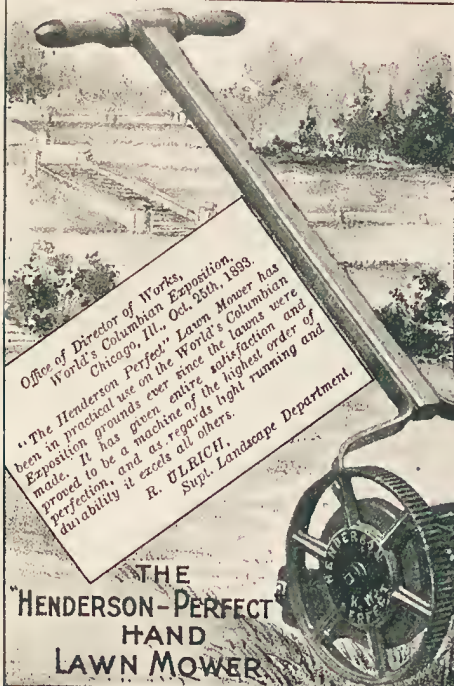 Office of Director of Works,
World's Columbian Exposition,
Chicago, Ill., Oct. 25th, 1893.
"The Henderson Perfect" Lawn Mower has
been in practical use on the World's Columbian
Exposition grounds ever since the lawns were
made. It has given entire satisfaction and
proved to be a machine of the highest order of
perfection, and as regards light running and
durability it excels all others.
R. ULRICH,
Supt. Landscape Department.
THE
"HENDERSON-PERFECT
HAND
LAWN MOWER.
HENDERSON
N.Y.
PERFECT